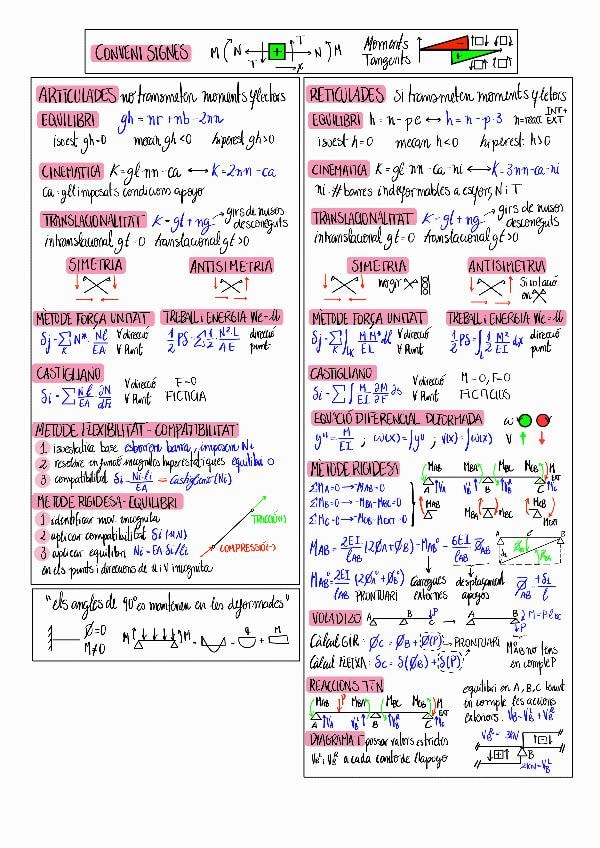 CONVENI SIGNES
M N T + T N M x
Moments
Tangents
ARTICULADES no transmeten moments flectors
EQUILIBRI gh = nr + nb - 2nn
isoest gh=0 mecan gh<0 hiperest gh>0
CINEMATICA K = gl·nn - ca ↔ K = 2nn - ca
ca: gll imposats condicions apoyo
TRANSLACIONALITAT K = gt + ng → girs de nusos desconeguts
intranslacional gt=0 translacional gt>0
SIMETRIA ANTISIMETRIA
MÈTODE FORÇA UNITAT TREBALL i ENERGIA We=U
δj = Σ N* · Nl/EA ∀ direcció ∀ Punt
1/2 Pδ = Σ 1/2 N²·L/AE direcció punt
CASTIGLIANO
δi = Σ Ni·li/EA · ∂N/∂Fi ∀ direcció ∀ Punt F=0 FICTICIA
METODE FLEXIBILITAT - COMPATIBILITAT
1 isoestatica base esborrem barra, imposem Ni
2 resoldre en funció incognites hiperestatiques equilibri 0
3 compatibilitat δi = Ni·li/EA = Castigliano (Ni)
METODE RIGIDESA - EQUILIBRI
1 identificar mov. incognita
2 aplicar compatibilitat δ (u,v)
3 aplicar equilibri Ni = EA·δi/li
en els punts i direccions de u i v incognita
TRACCIÓ(+)
COMPRESSIÓ(-)
"els angles de 90° es mantenen en les deformades"
Ø=0
M≠0
M M = + Q + M
RETICULADES Si transmeten moments flectors
EQUILIBRI h = n - p·e ↔ h = n - p·3 n=reacc INT + EXT
isoest h=0 mecan h<0 hiperest h>0
CINEMATICA K = gl·nn - ca - ni ↔ K = 3nn - ca - ni
ni: # barres indeformables a esforç N i T
TRANSLACIONALITAT K = gt + ng → girs de nusos desconeguts
intranslacional gt=0 translacional gt>0
SIMETRIA ANTISIMETRIA
no gir
Si translació en
MÈTODE FORÇA UNITAT TREBALL i ENERGIA We=U
δj = Σ ∫ M·M*/EI dl ∀ direcció ∀ Punt
1/2 Pδ = ∫ 1/2 M²/EI dx direcció punt
CASTIGLIANO
δi = Σ ∫ M/EI ∂M/∂F ds ∀ direcció ∀ Punt M=0, F=0 FICTICIOS
EQUACIÓ DIFERENCIAL DEFORMADA ω V
y'' = M/EI ; ω(x) = ∫y'' ; v(x) = ∫ω(x)
MÈTODE RIGIDESA
ΣMA=0 → MAB=0
ΣMB=0 → -MBA-MBC=0
ΣMC=0 → -MCB-MEXT=0
MAB MBA MBC MCB M EXT
A VA B VB C VC
MAB MBA MBC MCB MEXT
MAB = 2EI/lAB (2ØA + ØB) - MAB⁰ - 6EI/lAB Ø̄AB
MAB⁰ = 2EI/lAB (2ØA⁰ + ØB⁰) PRONTUARI
càrregues externes
desplaçament apoyos
Ø̄AB = + δi/l
VOLADIZO A B P C → A B M=P·lBC P
Càlcul GIR: ØC = ØB + Ø(P) → PRONTUARI
Càlcul FLEIXA: δC = δ(ØB) + δ(P)
M⁰AB no tens en compte P
REACCIONS T i N
MAB P MBA MBC MCB M EXT
A VA VB^L B VB^R C VC
equilibri en A, B, C tenint en compte les accions externes. VB = VB^L + VB^R
DIAGRAMA T passar valors esbrinats
VB^L i VB^R a cada cantó de l'apoyo
VB^R = 3KN
B
2KN = VB^L